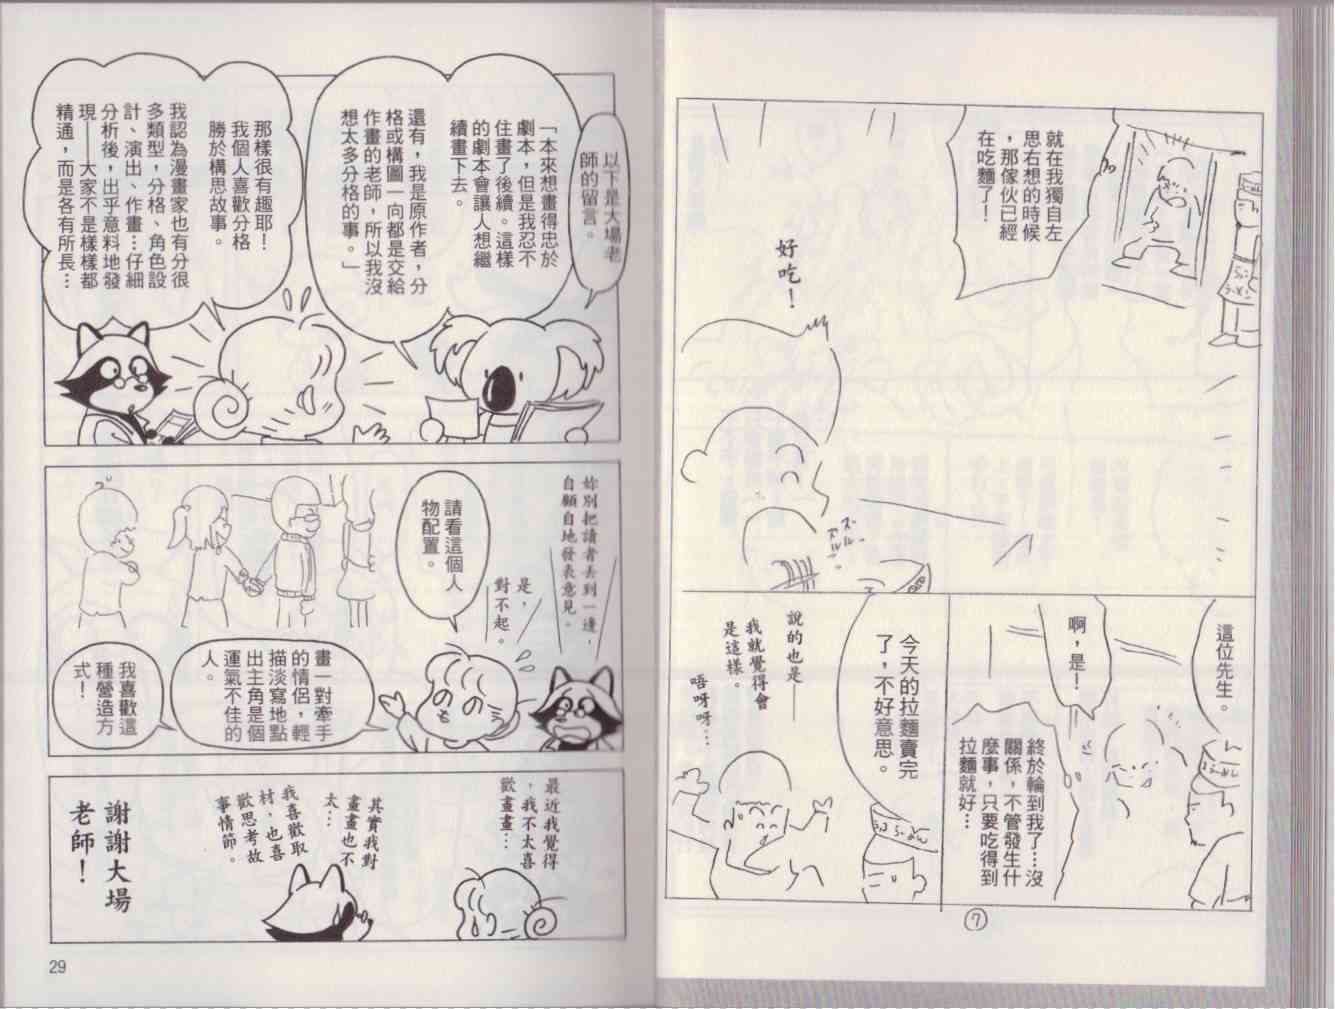 就在我獨自左
思右想的時候
，那傢伙已經
在吃麵了！
好吃！
ズルル
ズルル
這位先生。
啊，是！
終於輪到我了…沒
關係，不管發生什
麼事，只要吃得到
拉麵就好…
今天的拉麵賣完
了，不好意思。
說的也是——
我就覺得會
是這樣。
唔呀呀…
⑦
以下是大場老
師的留言。
「本來想畫得忠於
劇本，但是我忍不
住畫了後續。這樣
的劇本會讓人想繼
續畫下去。
還有，我是原作者，分
格或構圖一向都是交給
作畫的老師，所以我沒
想太多分格的事。」
那樣很有趣耶！
我個人喜歡分格
勝於構思故事。
我認為漫畫家也有分很
多類型，分格、角色設
計、演出、作畫…仔細
分析後，出乎意料地發
現——大家不是樣樣都
精通，而是各有所長…
妳別把讀者丟到一邊，
自顧自地發表意見。
是，
對不起。
請看這個人
物配置。
畫一對牽手
的情侶，輕
描淡寫地點
出主角是個
運氣不佳的
人。
我喜歡這
種營造方
式！
最近我覺得
，我不太喜
歡畫畫…
其實我對
畫畫也不
太…
我喜歡取
材，也喜
歡思考故
事情節。
謝謝大場
老師！
29